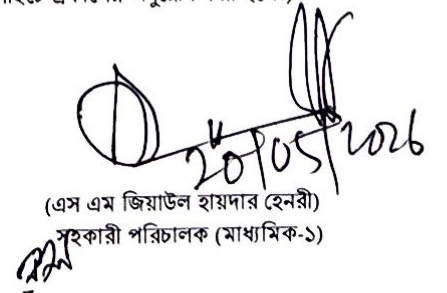 20/05/2026
(এস এম জিয়াউল হায়দার (হেনরী)
সহকারী পরিচালক (মাধ্যমিক-১)